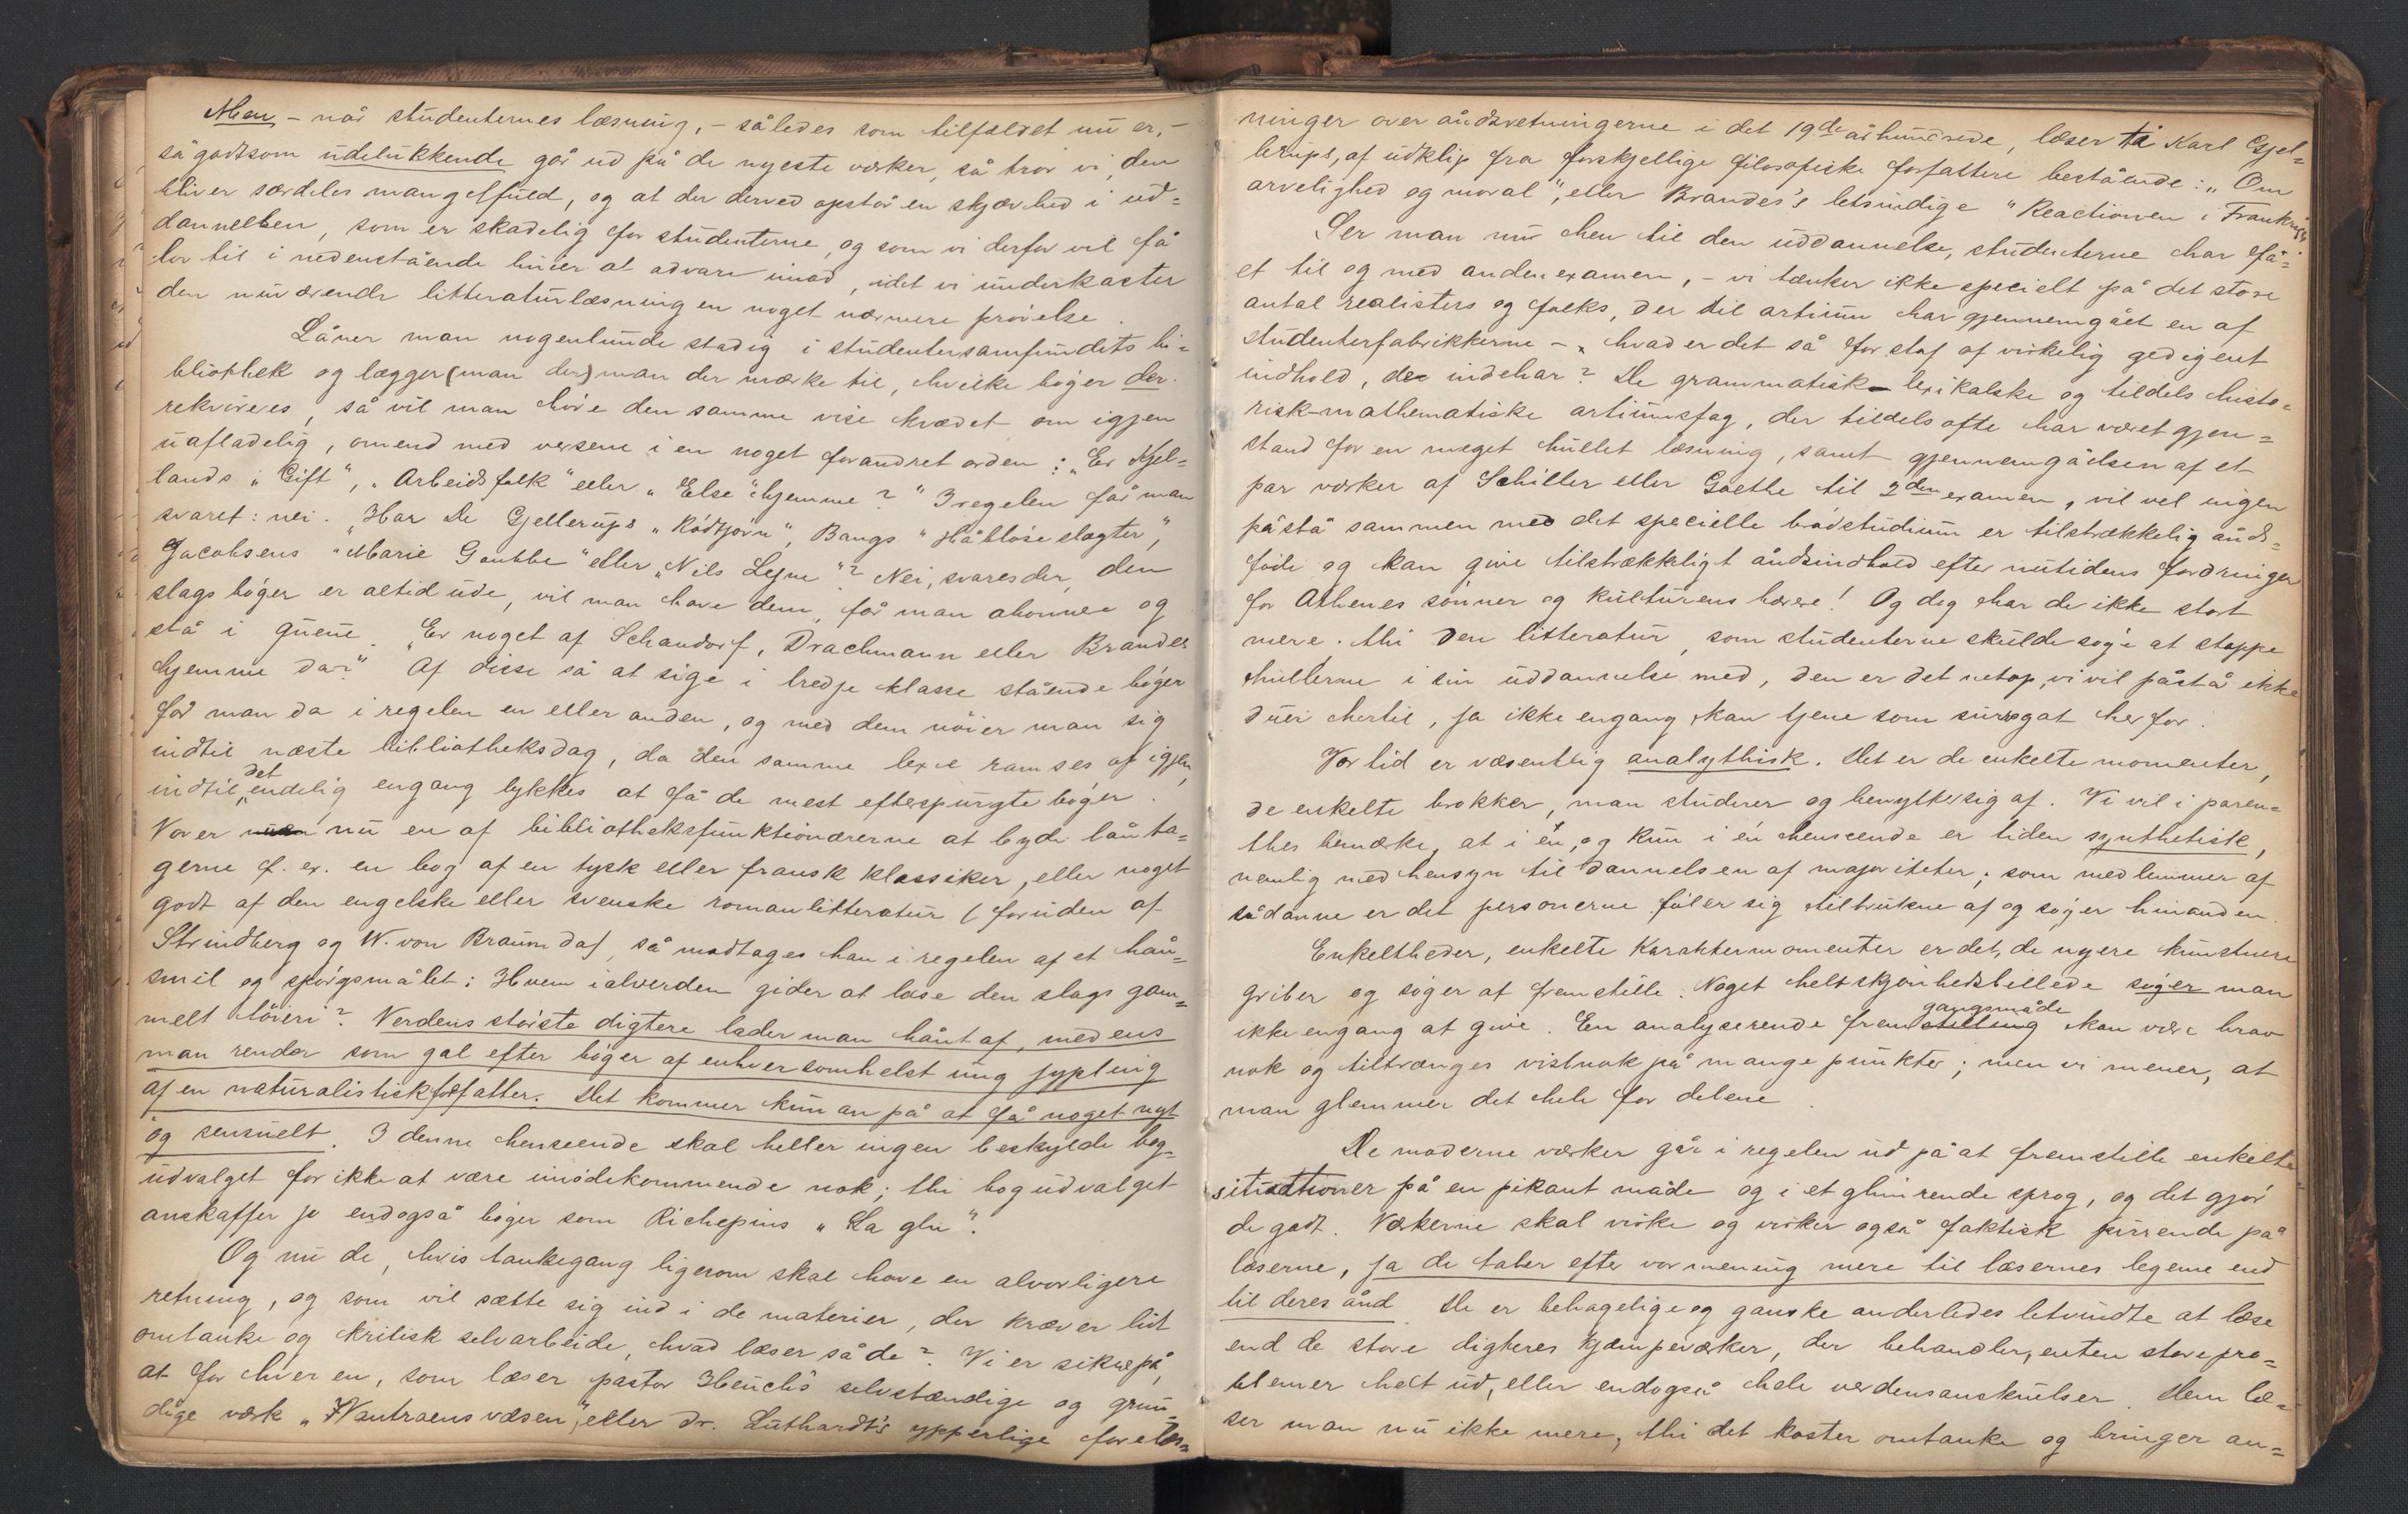 Men - når studenternes læsning, - således som tilfældet nu er, -
sågodtsom udelukkende går ud på de nyeste værker, så tror vi, den
bliver særdeles mangelfuld, og at der derved opstår en skjævhed i ud=
dannelsen, som er skadelig for studenterne, og som vi derfor vil få
lov til i nedenstående linier at advare imod, idet vi underkaster
den nuværende litteraturlæsning en noget nærmere prøvelse.
Låner man nogenlunde stadig i studentersamfundets bi=
bliothek og lægger (man der) man der mærke til, hvilke bøger der
rekvireres, så vil man høre den samme vise kvædet om igjen
uafladelig, omend med versene i en noget forandret orden: "Er Kjel=
lands "Gift", "Arbeidsfolk" eller "Else" hjemme?" I regelen får man
svaret: nei. "Har De Gjellerups "Rödtjørn", Bangs "Håbløse slægter",
Jacobsens "Marie Grubbe" eller "Nils Lyhne"? Nei, svares der, den
slags bøger er altid ude, vil man have dem, får man abonnere og
stå i queue. "Er noget af Schandorf, Drachmann eller Brandes
hjemme da?" Af disse så at sige i tredje klasse stående bøger
får man da i regelen en eller anden, og med dem nøier man sig
indtil næste bibliotheksdag, da den samme lexe ramses op igjen,
indtil det endelig engang lykkes at få de mest efterspurgte bøger.
Vover nu en af bibliotheksfunktionærerne at byde lånta=
gerne f. ex. en bog af en tysk eller fransk klassiker, eller noget
godt af den engelske eller svenske romanlitteratur (foruden af
Strindberg og W. von Braun da), så modtages han i regelen af et hån=
smil og spørgsmålet: Hvem ialverden gider at læse den slags gam=
melt tøieri? Verdens største digtere lader man hånt af, medens
man render som gal efter bøger af enhversomhelst ung jypling
af en naturalistisk forfatter. Det kommer kun an på at få noget nyt
og sensuelt. I denne henseende skal heller ingen beskylde bog=
udvalget for ikke at være imødekommende nok; thi bogudvalget
anskaffer jo endogså bøger som Richepins "La glu".
Og nu de, hvis tankegang ligesom skal have en alvorligere
retning, og som vil sætte sig ind i de materier, der kræver lidt
omtanke og kritisk selvarbeide, hvad læser så de? Vi er sikre på,
at for hver en, som læser pastor Heuch's selvstændige og grun=
dige værk "Vantroens væsen", eller dr. Luthardt's ypperlige forelæs=
ninger over åndsretningerne i det 19de århundrede, læser ti Karl Gjel=
lerups, af udklip fra forskjellige filosofiske forfattere bestående: "Om
arvelighed og moral", eller Brandes's letsindige "Reactionen i Frankrig".
Ser man nu hen til den uddannelse, studenterne har få=
et til og med anden examen, - vi tænker ikke specielt på det store
antal realisters og folks, der til artium har gjennemgået en af
studenterfabrikkerne -, hvad er det så for stof af virkelig gedigent
indhold, de indehar? De grammatisk-lexikalske og tildels histo=
risk-mathematiske artiumsfag, der tildels ofte har været gjen=
stand for en meget hullet læsning, samt gjennemgåelsen af et
par værker af Schiller eller Goethe til 2den examen, vil vel ingen
påstå sammen med det specielle brødstudium er tilstrækkelig ånds=
føde og kan give tilstrækkeligt åndsindhold efter nutidens fordringer
for Athenes sønner og kulturens bærere! Og dog har de ikke stort
mere. thi den litteratur, som studenterne skulde søge at stoppe
hullerne i sin uddannelse med, den er det netop, vi vil påstå ikke
duer hertil, ja ikke engang kan tjene som surrogat herfor.
Vor tid er væsentlig analythisk. Det er de enkelte momenter,
de enkelte brokker, man studerer og benytter sig af. Vi vil i paren=
thes bemærke, at i én, og kun i én henseende er tiden synthetisk,
nemlig med hensyn til dannelsen af majoriteter; som medlemmer af
sådanne er det personerne føler sig tiltrukne af og søger hinanden.
Enkeltheder, enkelte karaktermomenter er det, de nyere kunstnere
griber og søger at fremstille. Noget helt skjønhedsbillede søger man
ikke engang at give. En analyserende fremstilling gangsmåde kan være brav
nok og tiltrænges vistnok på mange punkter; men vi mener, at
man glemmer det hele for delene.
De moderne værker går i regelen ud på at fremstille enkelte
situationer på en pikant måde og i et glimrende sprog, og det gjør
de godt. Værkerne skal virke og virker også faktisk pirrende på
læserne, ja de taler efter vor mening mere til læsernes legeme end
til deres ånd. De er behagelige og ganske anderledes letvindte at læse
end de store digteres kjæmpeværker, der behandler, enten store pro=
blemer helt ud, eller endogså hele verdensanskuelser. Dem læ=
ser man nu ikke mere, thi det koster omtanke og bringer an=